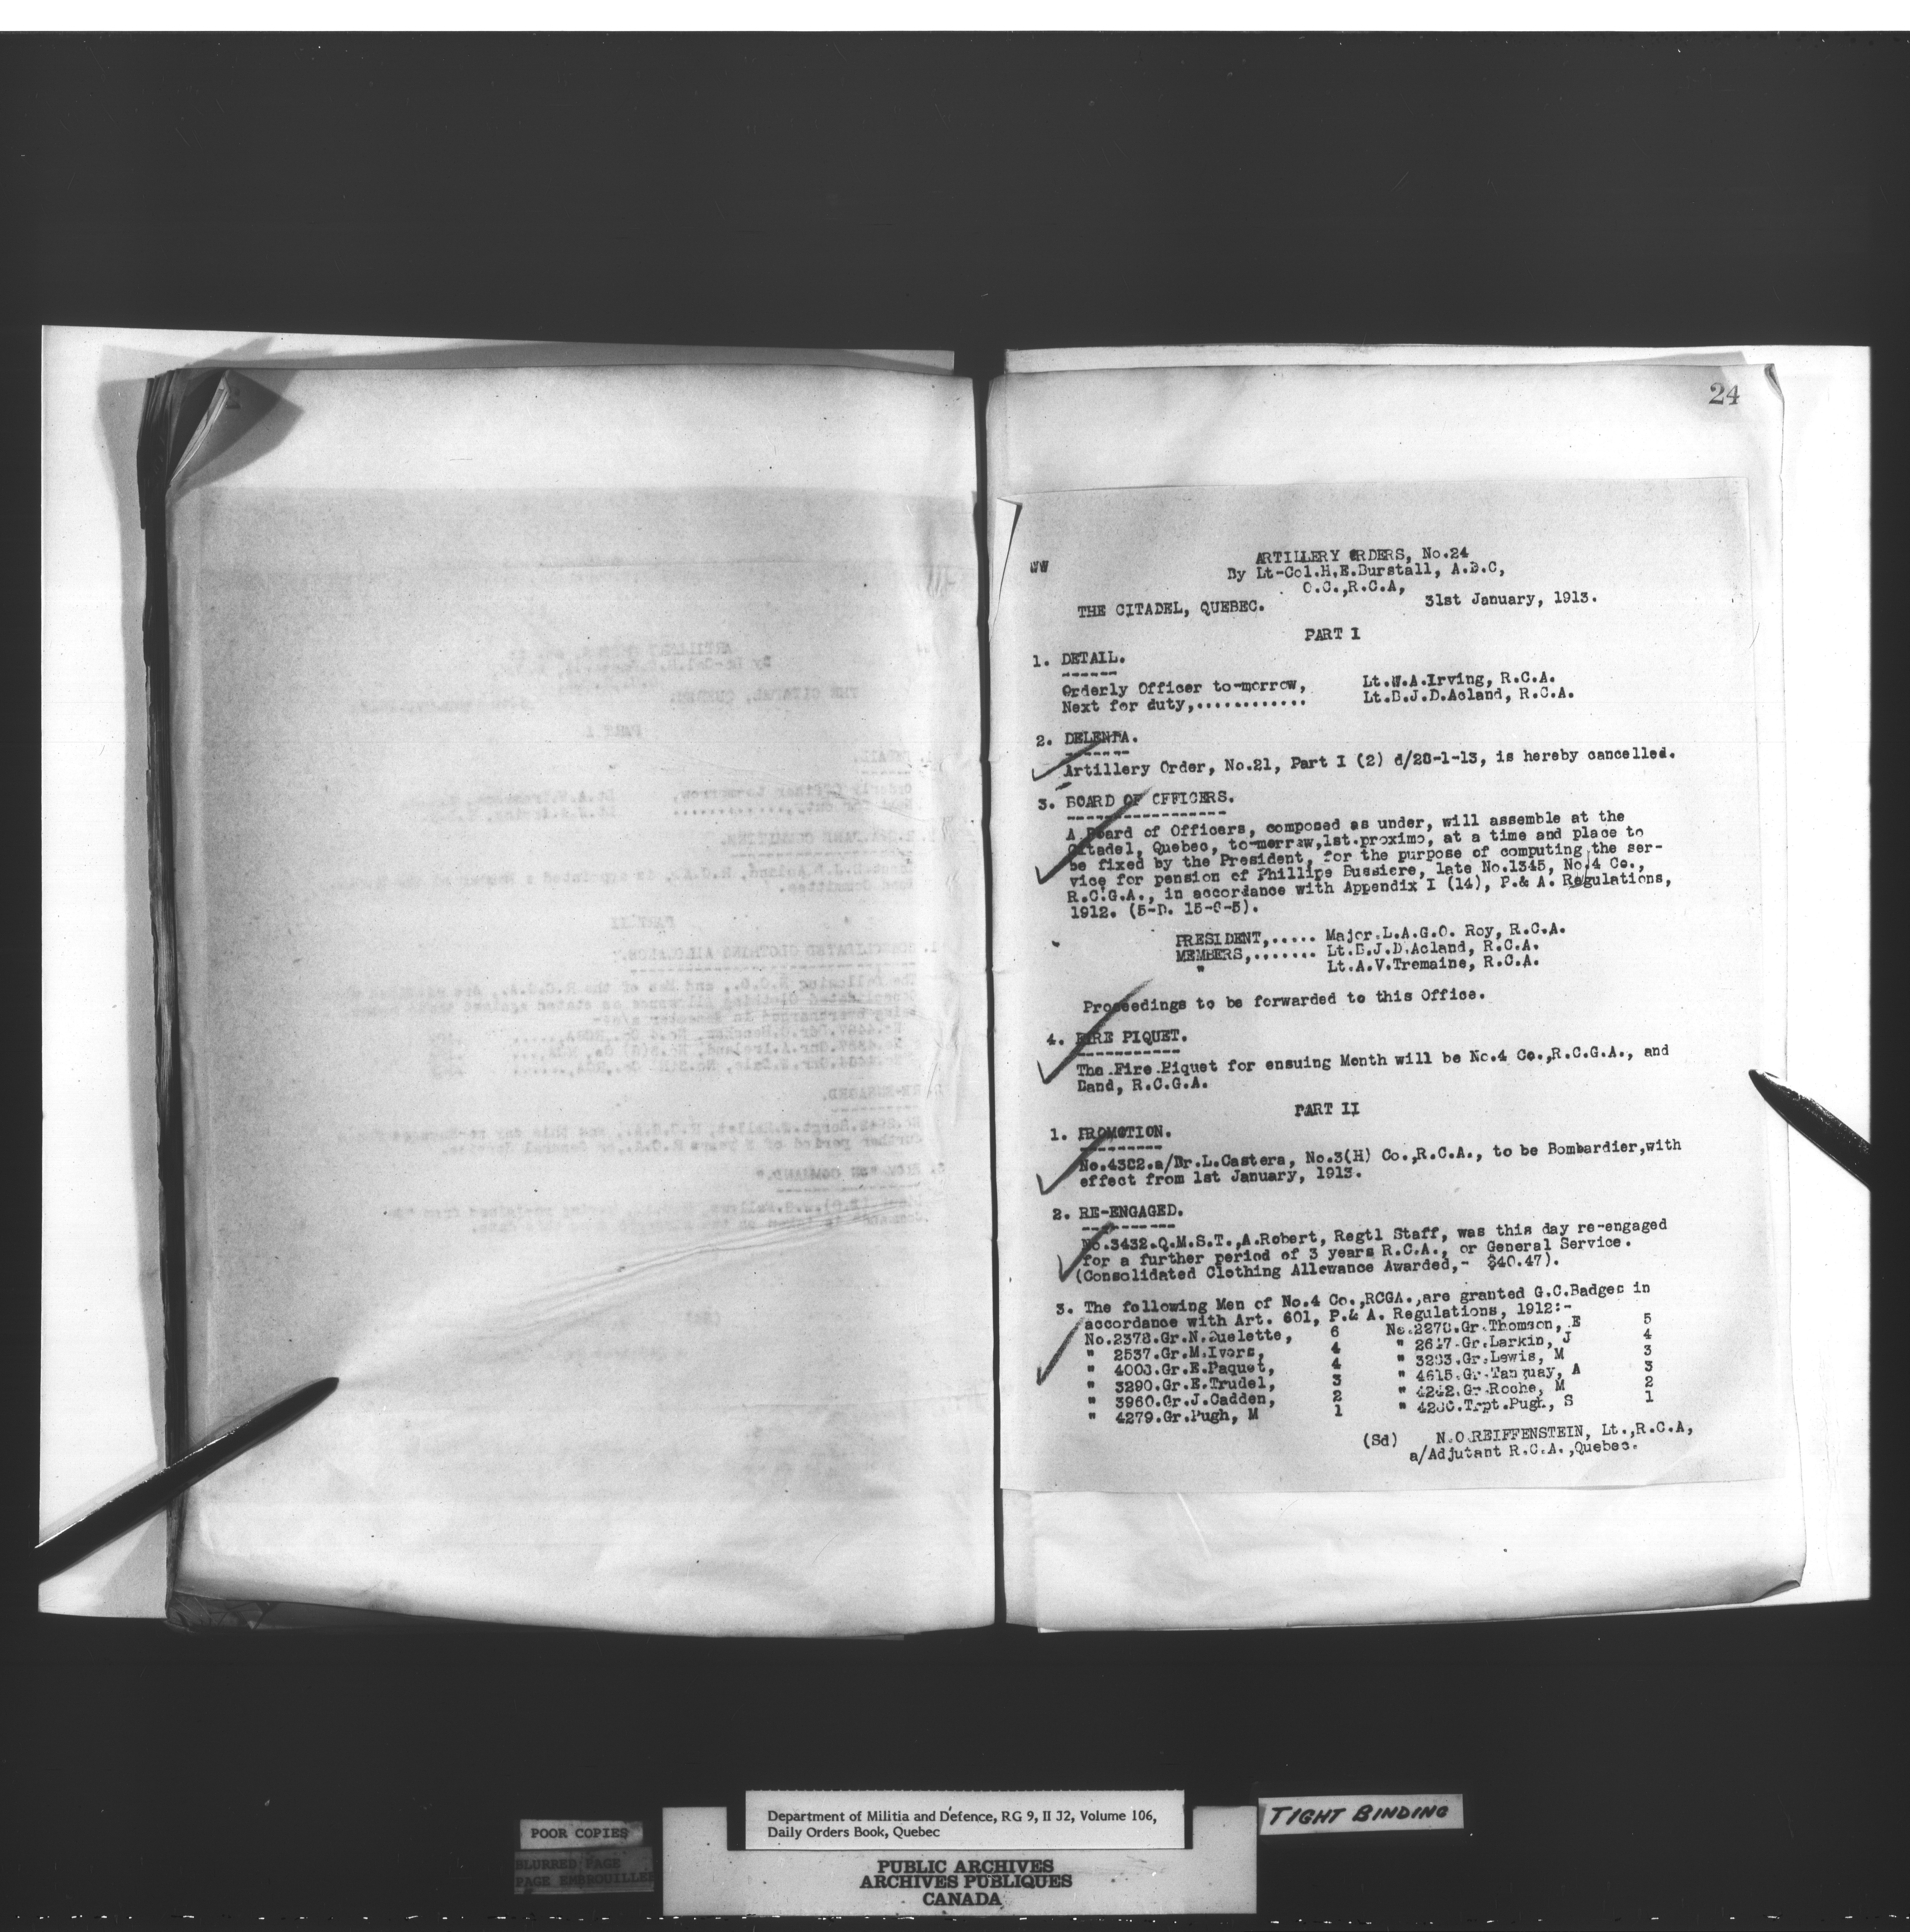 24
WW
ARTILLERY ORDERS, No.24
By Lt-Col.H.E.Burstall, A.D.C,
O.C.,R.C.A,
THE CITADEL, QUEBEC. 31st January, 1913.
PART I
1. DETAIL.
Orderly Officer to-morrow, Lt.W.A.Irving, R.C.A.
Next for duty,............ Lt.B.J.D.Acland, R.C.A.
2. DELENDA.
Artillery Order, No.21, Part I (2) d/28-1-13, is hereby cancelled.
3. BOARD OF OFFICERS.
A Board of Officers, composed as under, will assemble at the
Citadel, Quebec, to-morrow,1st.proximo, at a time and place to
be fixed by the President, for the purpose of computing the ser-
vice for pension of Phillipe Bussiere, late No.1345, No.4 Co.,
R.C.G.A., in accordance with Appendix I (14), P.& A. Regulations,
1912. (5-D. 15-6-5).
PRESIDENT,..... Major.L.A.G.O. Roy, R.C.A.
MEMBERS,....... Lt.B.J.D.Acland, R.C.A.
" Lt.A.V.Tremaine, R.C.A.
Proceedings to be forwarded to this Office.
4. FIRE PIQUET.
The Fire Piquet for ensuing Month will be No.4 Co.,R.C.G.A., and
Band, R.C.G.A.
PART II
1. PROMOTION.
No.4382.a/Br.L.Castera, No.3(H) Co.,R.C.A., to be Bombardier,with
effect from 1st January, 1913.
2. RE-ENGAGED.
No.3432.Q.M.S.T.,A.Robert, Regtl Staff, was this day re-engaged
for a further period of 3 years R.C.A., or General Service.
(Consolidated Clothing Allowance Awarded,- $40.47).
3. The following Men of No.4 Co.,RCGA.,are granted G.C.Badges in
accordance with Art. 601, P.& A. Regulations, 1912:-
No.2378.Gr.N.Ouelette, 6 No.2278.Gr.Thomson, E 5
" 2537.Gr.M.Ivors, 4 " 2647.Gr.Larkin, J 4
" 4008.Gr.E.Paquet, 4 " 3283.Gr.Lewis, M 3
" 3290.Gr.E.Trudel, 3 " 4615.Gr.Tanguay, A 3
" 3960.Gr.J.Cadden, 2 " 4242.Gr.Roche, M 2
" 4279.Gr.Pugh, M 1 " 4280.Trpt.Pugh, S 1
(Sd) N.O.REIFFENSTEIN, Lt.,R.C.A,
a/Adjutant R.C.A.,Quebec.
POOR COPIES
BLURRED PAGE
PAGE EMBROUILLEE
Department of Militia and Defence, RG 9, II J2, Volume 106,
Daily Orders Book, Quebec
PUBLIC ARCHIVES
ARCHIVES PUBLIQUES
CANADA
TIGHT BINDING